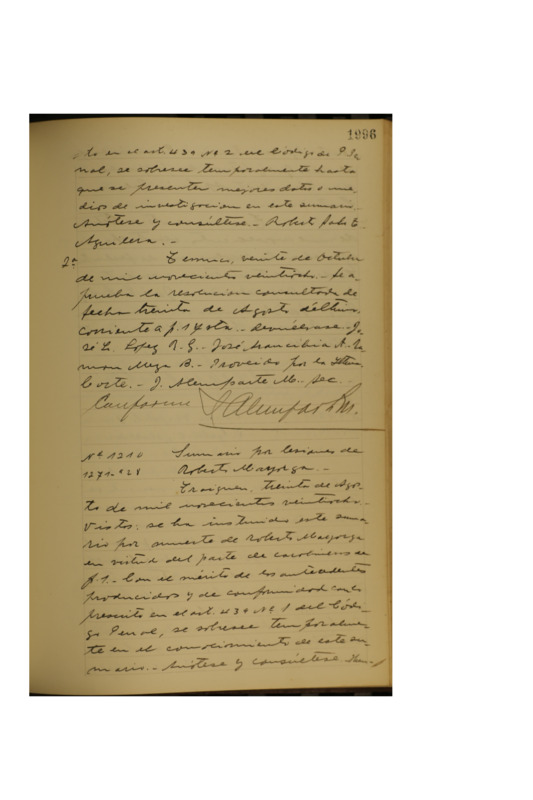 1996
to en el art. 430 No 2 del Código de P. Pe-
nal, se sobresee temporalmente hasta
que se presenten mejores datos o me-
dios de investigacion en este sumario.-
Anótese y consúltese.- Robert
Aguilera.-
2a Temuco, veinte de Octubre
de mil novecientos veintiocho.- Se a-
prueba la resolucion consultada de
fecha treinta de Agosto último,
corriente a f. 14 vta.- Devuélvase.- Jo-
sé L. Lopez R. G.- José Arancibia A.- Ra-
mon Meza B.- Proveido por la Iltma.
Corte.- J. Alemparte M.- Sec.-
Conforme J Alemparte M.
No 1210 Sumario por lesiones de
1271-928 Roberto Mayorga.-
Traiguen, treinta de Agos-
to de mil novecientos veintiocho.-
Vistos: se ha instruido este suma-
rio por muerte de Roberto Mayorga
en virtud del parte de carabineros de
f 1.- Con el mérito de los antecedentes
producidos y de conformidad con lo
prescrito en el art. 430 No 1 del Códi-
go Penal, se sobresee temporalmen-
te en el conocimiento de este su-
mario.- Anótese y consúltese.